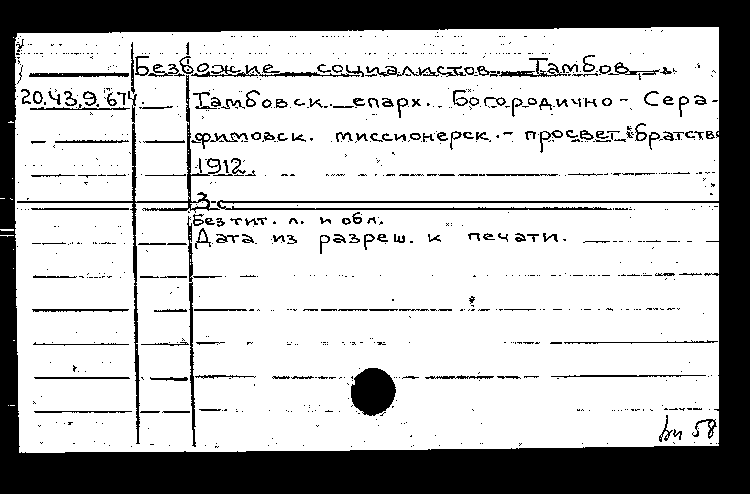 Безбожие социалистов. Тамбов,
20.43.9.674. Тамбовск. епарх. Богородично-Сера-
фимовск. миссионерск.-просвет. братство
1912.
3 с.
Без тит. л. и обл.
Дата из разреш. к печати.
58